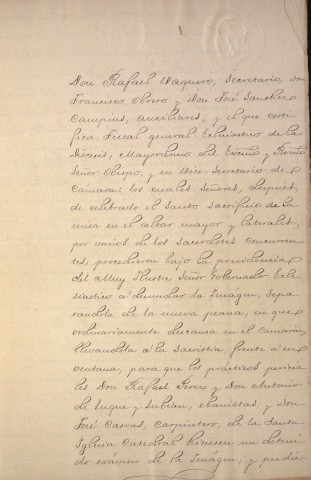 Don Rafael Vaquero, Secretario, Don
Francisco Obrero y Don José Sanchez
Campins, auxiliares; y el que certi-
fica Fiscal general Eclesiástico de la
Diócesis, Mayordomo del Excmo y Rvmo
Señor Obispo, y su Vice-Secretario de
Cámara: los cuales Señores, después
de celebrado el Santo Sacrificio de la
misa en el altar mayor y laterales
por varios de los Sacerdotes concurren-
tes, procedieron bajo la presidencia
del Muy Ilustre Señor Gobernador Ecle-
siastico á desmontar la Imágen, sepa-
randola de la nueva peana, en que
ordinariamente descansa en el Camarin,
llevandola á la Sacristia, frente á una
ventana, para que los prácticos pericia-
les Don Rafael y Don Antonio
de Luque y Lubian, ebanistas, y Don
José Carvas, carpintero, de la Santa
Iglesia Catedral hiciesen un deteni-
do exámen de la Imágen, y pudie-